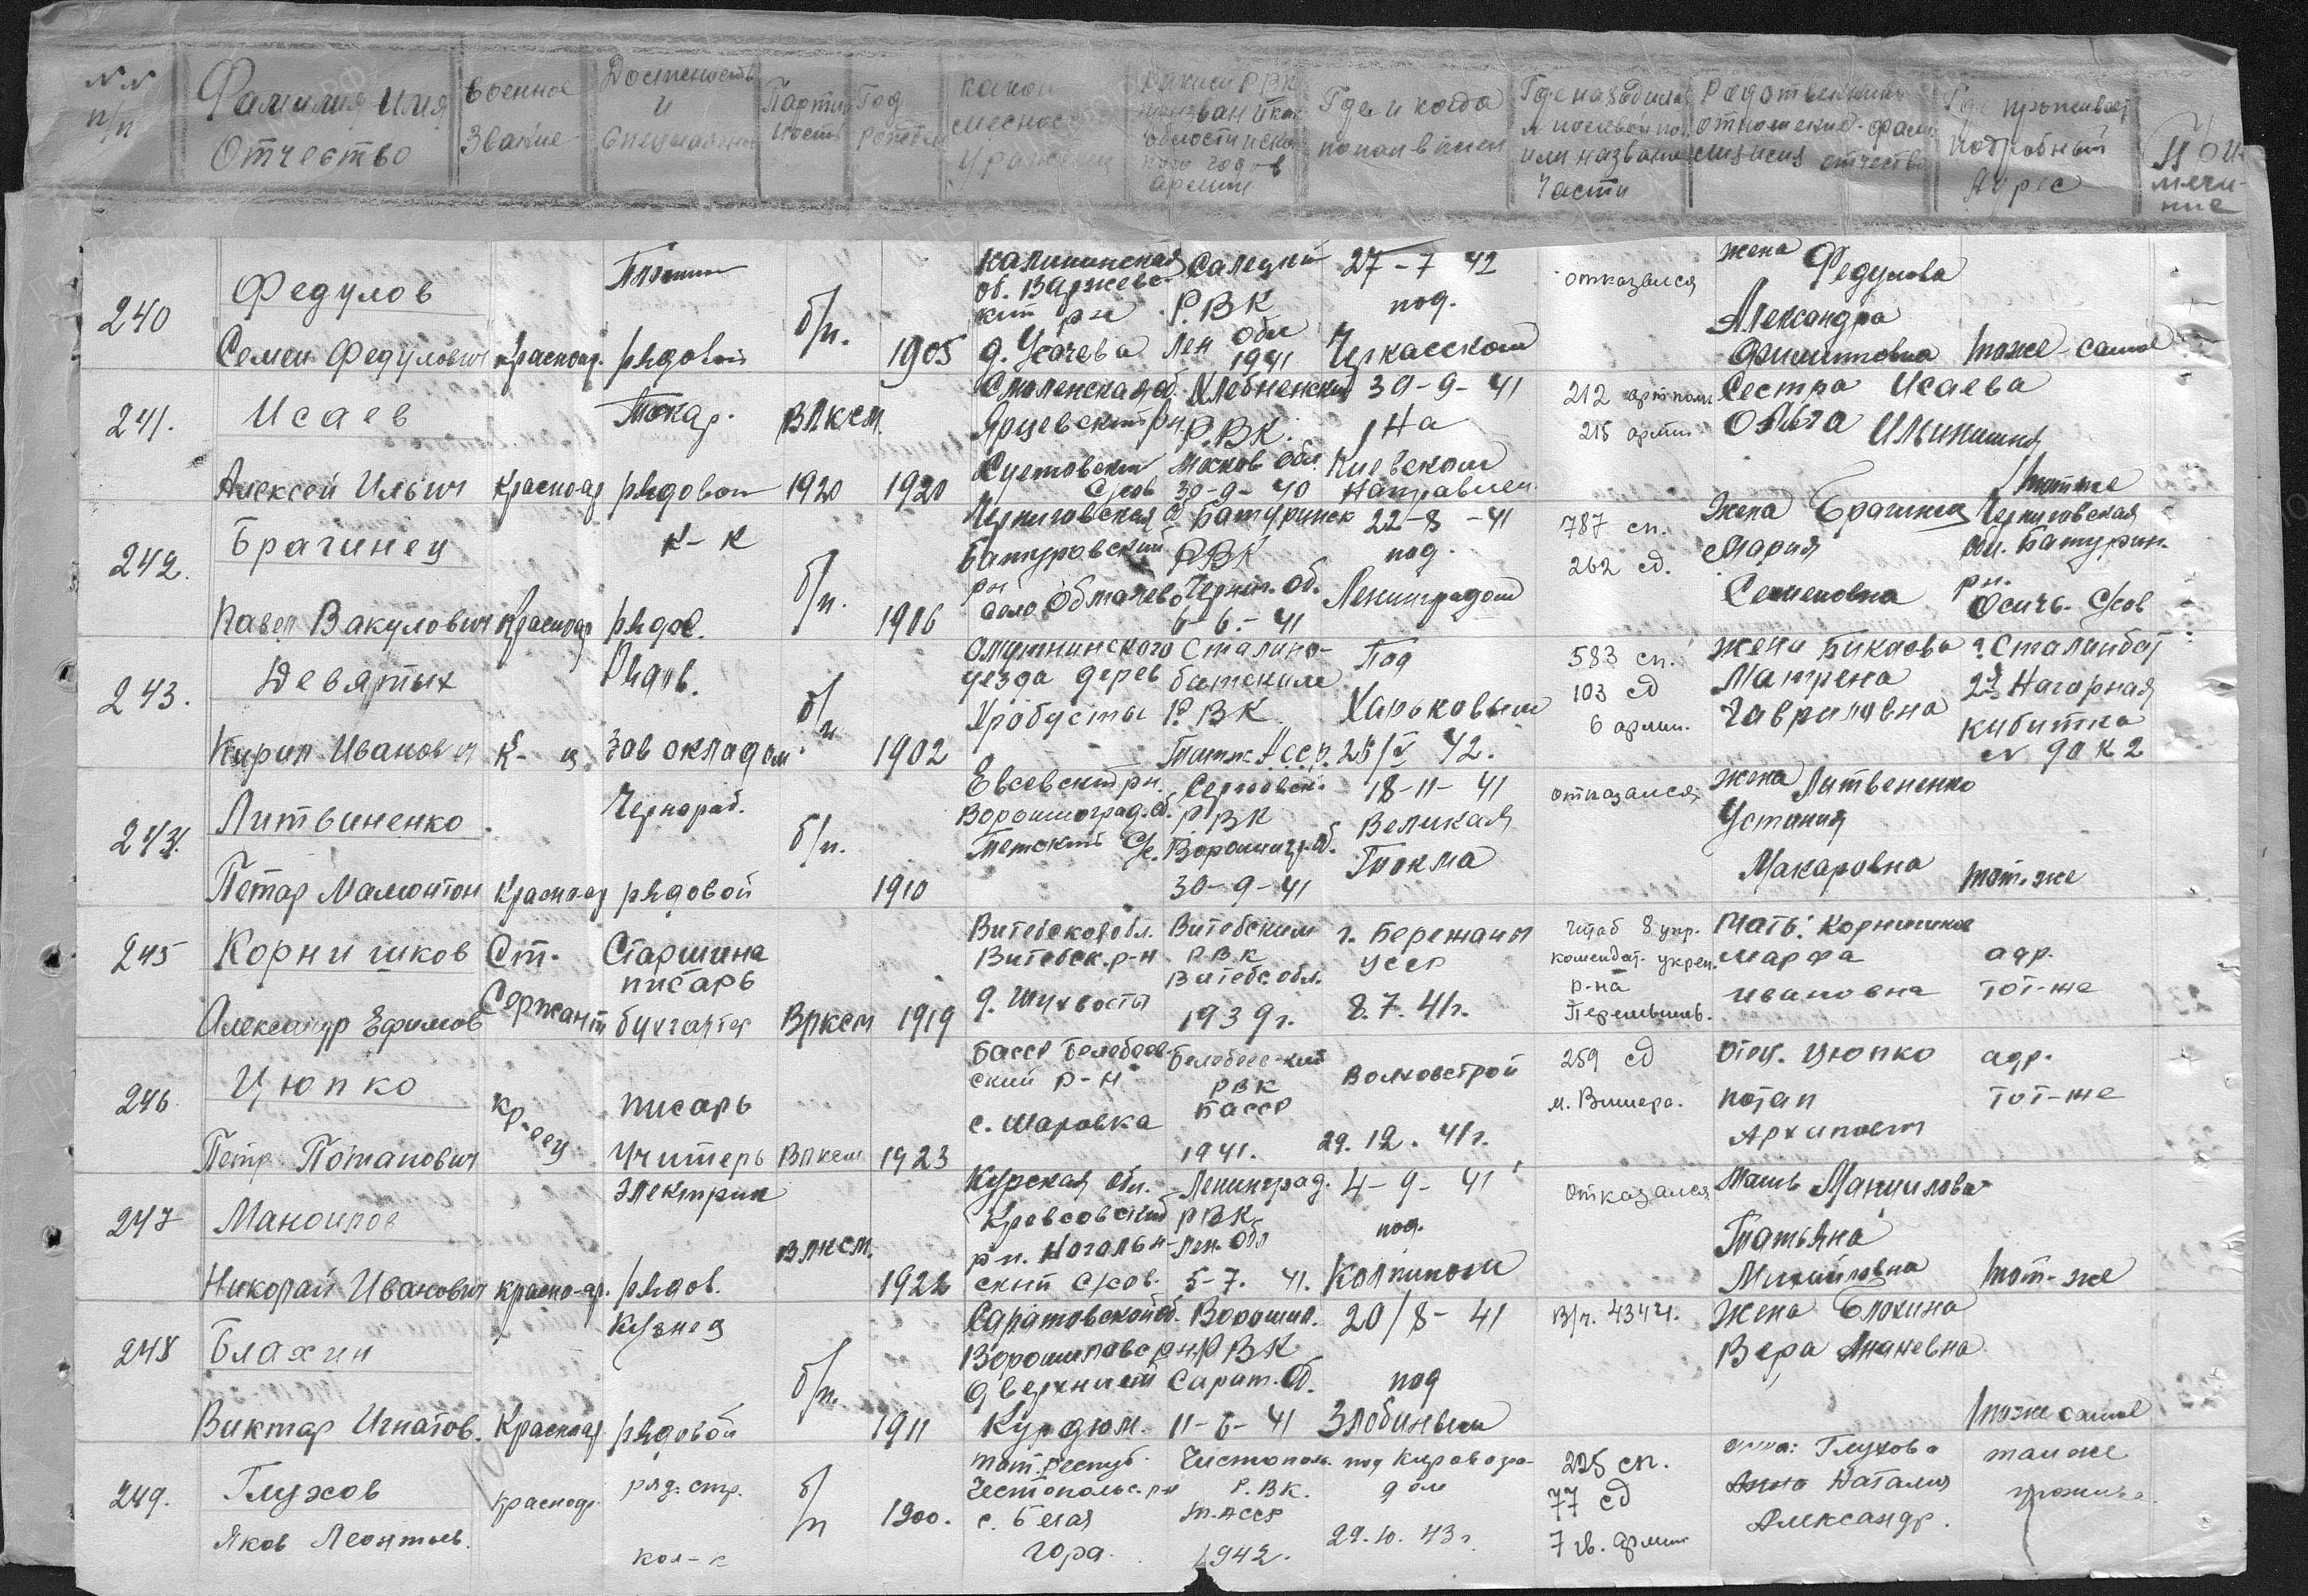 NN п/п
Фамилия Имя Отчество
Военное Звание
Должность и специальность
Партийность
Год рожден
какой
Где и когда попал в плен
Где находился
или название части
Родственные отношение фамилия имя отчество
Где проживает подробный Адрес
240
Федулов
Семен Федулович
Красноар.
рядовой
б/п.
1905
Калининская
об.
кий рн
д. Усачева
Р.ВК
Лен Обл
1941
27-7 42
под.
Черкасском
отказался
жена Федулова
Александра
тоже-самое
241.
Исаев
Алексей Ильич
Красно-ар
Токар.
рядовой
ВЛКСМ.
1920
1920
Смоленская об.
Ярцевский рн.
Суетовский
С/сов
Хлебненский
Р.ВК.
Москов Обл.
30-9-40
30-9-41
На
Киевском
Направлен.
212 арт полк
215 арми
Сестра Исаева
Ольга Ильинишна
242.
Брагинец
Павел Вакулович
Красноар
К-К
рядов.
б/п.
1906
Черниговская об
Батуровский
рн
село Обмачево
Батуринск
РВК
Черниг. Об.
6-6.-41
22-8-41
под.
Ленинградом
787 сп.
262 сд.
Жена Брагинец
Мария
Семеновна
Черниговская
обл. Батурин.
рн.
Осичь. С/сов
243.
Девятых
Кирил Иванович
К-ц
Рядов.
Зав складом
б/п
1902
Омутнинского
уезда дерев
Хробусты
Сталино-
батским
Р.ВК
Тадж. АССР.
Под
Харьковым
25/V 42.
583 сп.
103 сд
6 арми.
Жена Бикаова
Матрена
Гавриловна
г. Сталинбат
2я Нагорная
кибитка
N 90 К 2
244.
Литвиненко
Петар Мамонтон
Красноар
Чернораб.
рядовой
б/п.
1910
Евсевский рн.
Ворошиловград. об.
РВК
Ворошилгр. об.
30-9-41
18-11-41
Великая
Токма
отказался
жена Литвененко
Устиния
Макаровна
тот-же
245
Корнишков
Александр Ефимов
Ст.
Сержант
Старшина
писарь
бухгалтер
Влксм
1919
Витебской обл.
Витебск. р-н
д. Шухвосты
Витебским
РВК
Витебс. обл.
1939г.
г. Бережаны
УССР
8.7.41г.
Штаб 8 укр.
комендат. укреп.
р-на
Перемышль.
Мать: Корнишкова
Марфа
Ивановна
адр.
тот-же
246
Цюпко
Петр Потапович
кр-еец
писарь
Учитель
Влксм
1923
БАССР Белебеев-
ский р-н
с. Шаровка
Белебеевский
РВК
БАССР
1941.
Волховстрой
29.12.41г.
259 сд
м. Вишера.
отец. Цюпко
потап
Архипович
адр.
тот-же
247
Маноилов
Николай Иванович
красно-ар.
электрик
рядов.
ВЛКСМ.
1922
Курская обл.
рн.
ский С/сов.
Ленинград.
РВК
Лен. Обл
5-7. 41.
4-9-41
под.
Колпином
Отказался
Мать Мануилова
Татьяна
Михайловна
тот-же
248
Блахин
Виктар Игнатов.
Красноар
Кузнец
рядовой
б/п.
1911
Саратовской об.
Ворошиловс рн.
д Верхний
Курдюм.
Ворошил.
Р ВК
Сарат. Об.
11-6-41
20/8-41
под
Злобиным
В/ч. 4344.
Жена Блохина
Вера Ананевна
тоже самое
249.
Глухов
Яков Леонтьев.
красноар.
ряд. стр.
кол-к
б/п
1900.
тат. Респуб.
Чистопольс. рн
с. Белая
гора.
Чистополь.
Р.ВК.
Т.АССР
1942.
под Кировогра-
дом
29.10.43г.
225 сп.
77 сд
7 гв. армии
жена: Глухова
Наталия
Александр.
там же